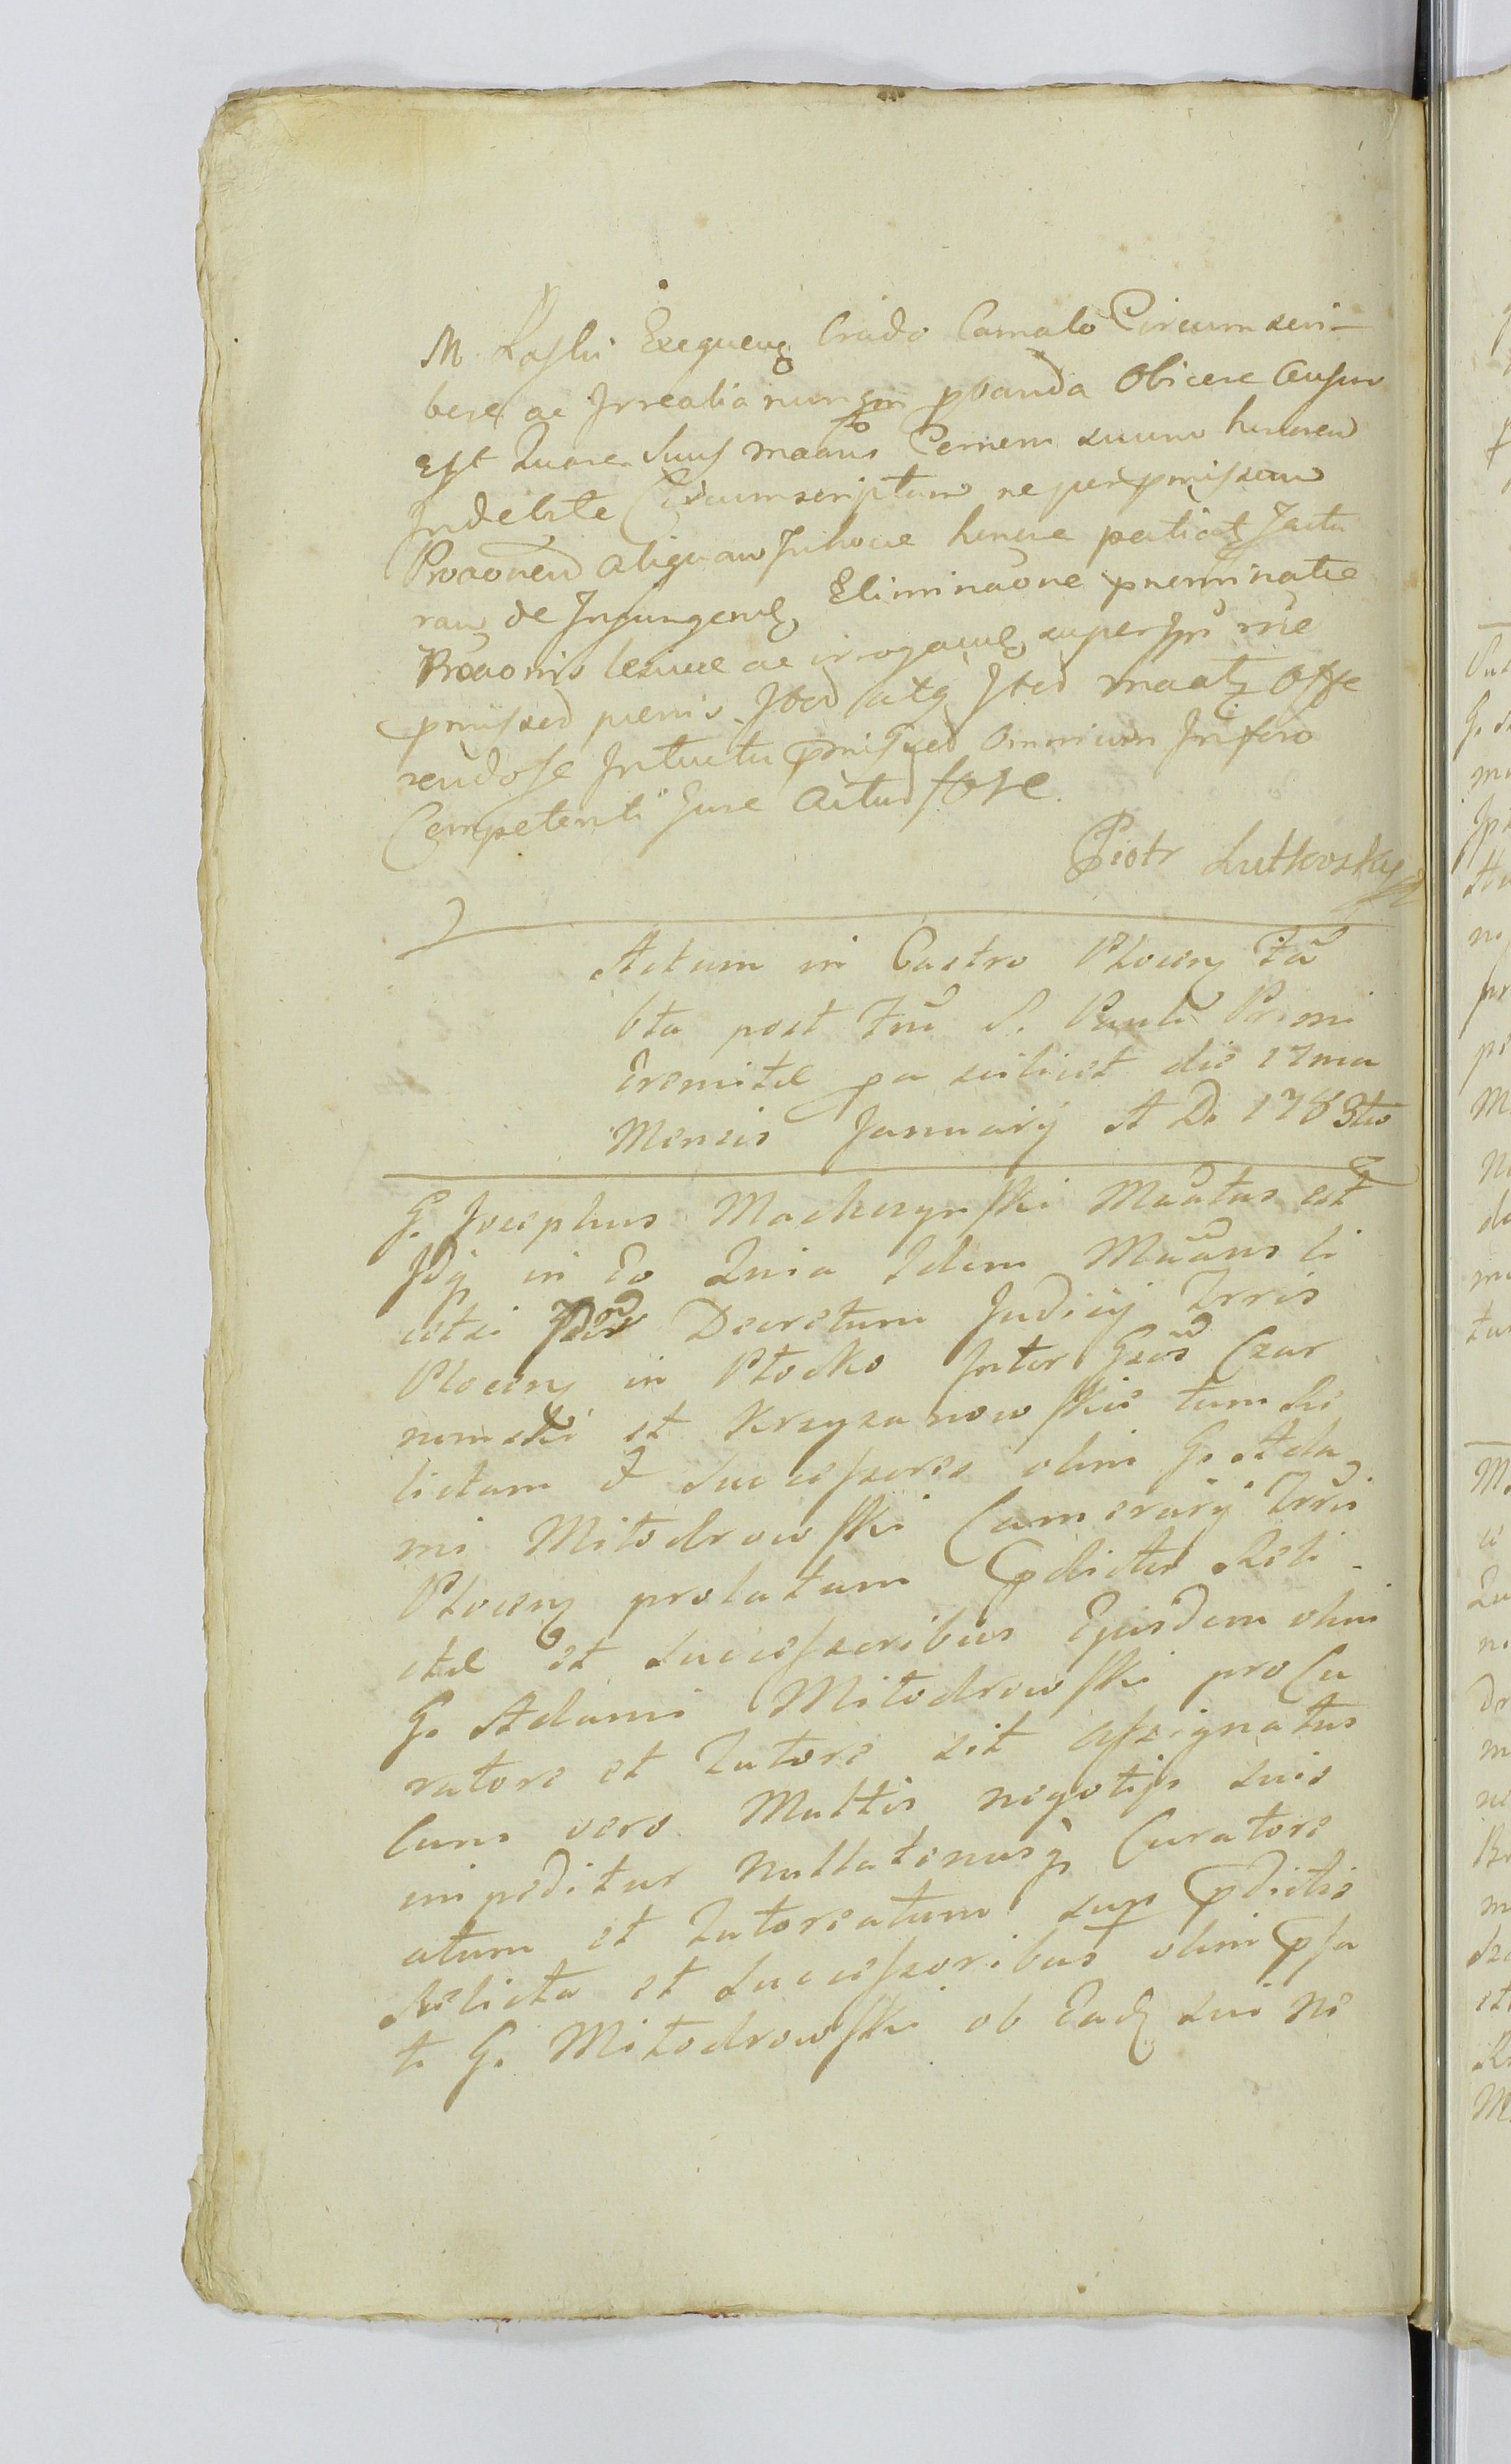 M Laski Exequeng Crido Camalo Circumscri-
bere ac Irrealia nunqm pbanda Obicere Ausus
est Quare Suus maans Cernens suum hunces
Indebite Circumscriptum ne per pmissam
Proaonem aliquam Inhoce hencce patiat Jactu
ram de Injungenda Eliminaone pnominatae
Proaonis lesivae ac irroganda super
pmissed penis Sted atq Sted maatz Offe
rendose Intuitu pmissed omnium Inforo
Competenti Jure Actus fore
Piotr Lutkosky
Actum in Castro Plocen Sa
bta post Ftu S. Pauli Primi
Eremitae pa scilicet die 17ma
Mensis Januarij A D. 1783tio
G. Josephus Machczynski Maatus est
Idq in Eo Quia Idem Maans li
cet Decretum Judicij Trris
Plocen in Płocko Inter Gsos Czar
nomski et Krzyzanowskie tum Re
lictam & Successores olim G. Ada
mi Miłodrowski Camerarij Trris
Plocen prolatum pdictae Reli-
ctae et Successoribus Ejusdem olim
G. Adami Miłodrowski pro Cu
ratore et Tutore sit Assignatus
Cum vero Multis negotijs suis
impeditur Nullatenusq Curatore
atum et Tutoreatum sup pdictis
Relicta et Successoribus olim pfa
ti G. Miłodrowski ob Ead sui ne